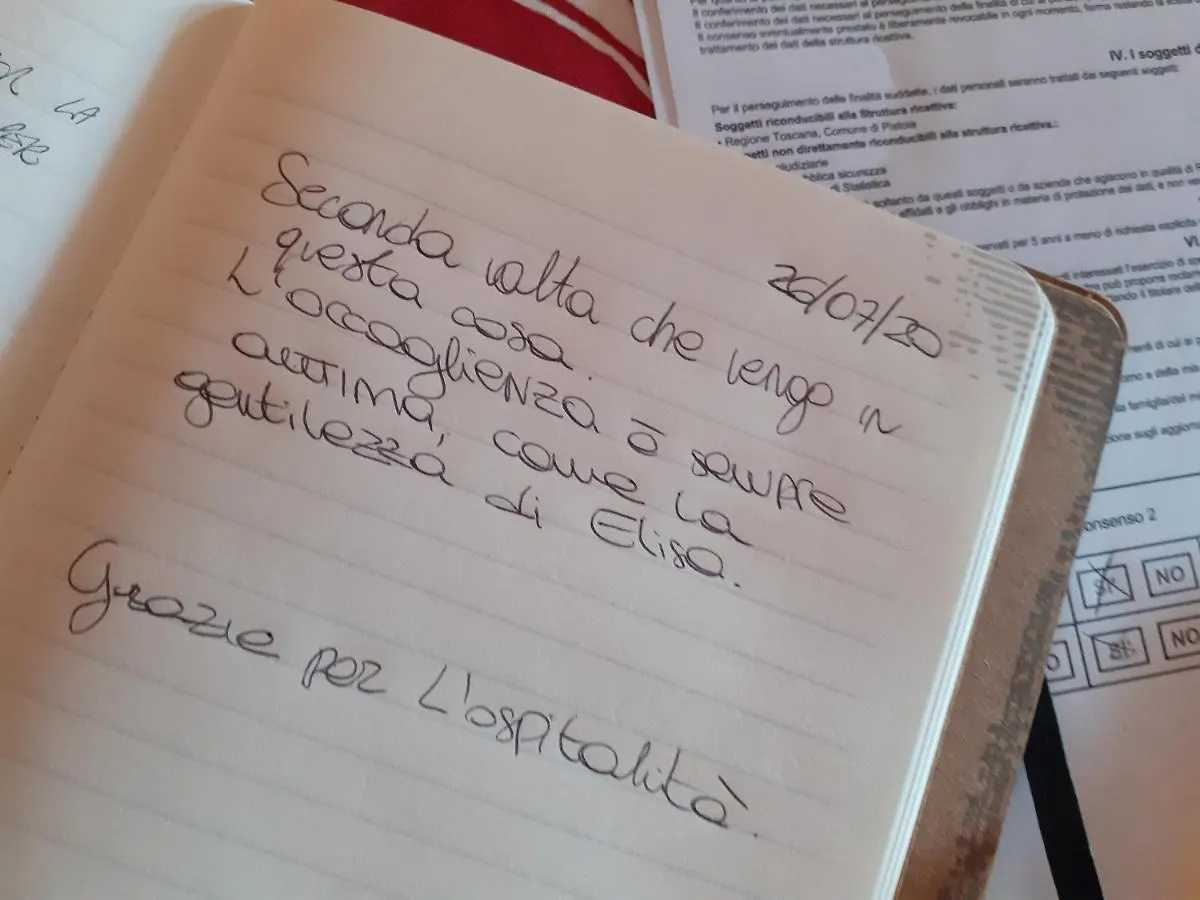 OR LA
PER
26/07/20
Seconda volta che vengo in
questa casa.
L'accoglienza è sempre
ottima, come la
gentilezza di Elisa.
Grazie per L'ospitalità.
Il conferimento dei dati necessari al perseguimento delle finalità di cui al
Il consenso eventualmente prestato è liberamente revocabile in ogni momento, fermo restando la
trattamento dei dati della struttura ricettiva.
IV. I soggetti d
Per il perseguimento delle finalità suddette, i dati personali saranno trattati dai seguenti soggetti:
Soggetti riconducibili alla Struttura ricettiva:
• Regione Toscana, Comune di Pistoia
getti non direttamente riconducibili alla struttura ricettiva.:
giudiziarie
bblica sicurezza
di Statistica
soltanto da questi soggetti o da aziende che agiscono in qualità di R
affidati e gli obblighi in materia di protezione dei dati, e non ve
ervati per 5 anni a meno di richiesta esplicita
VI
interessati l'esercizio di
può proporre
tando il titolare de
onsenso 2
SI NO
O SI NO